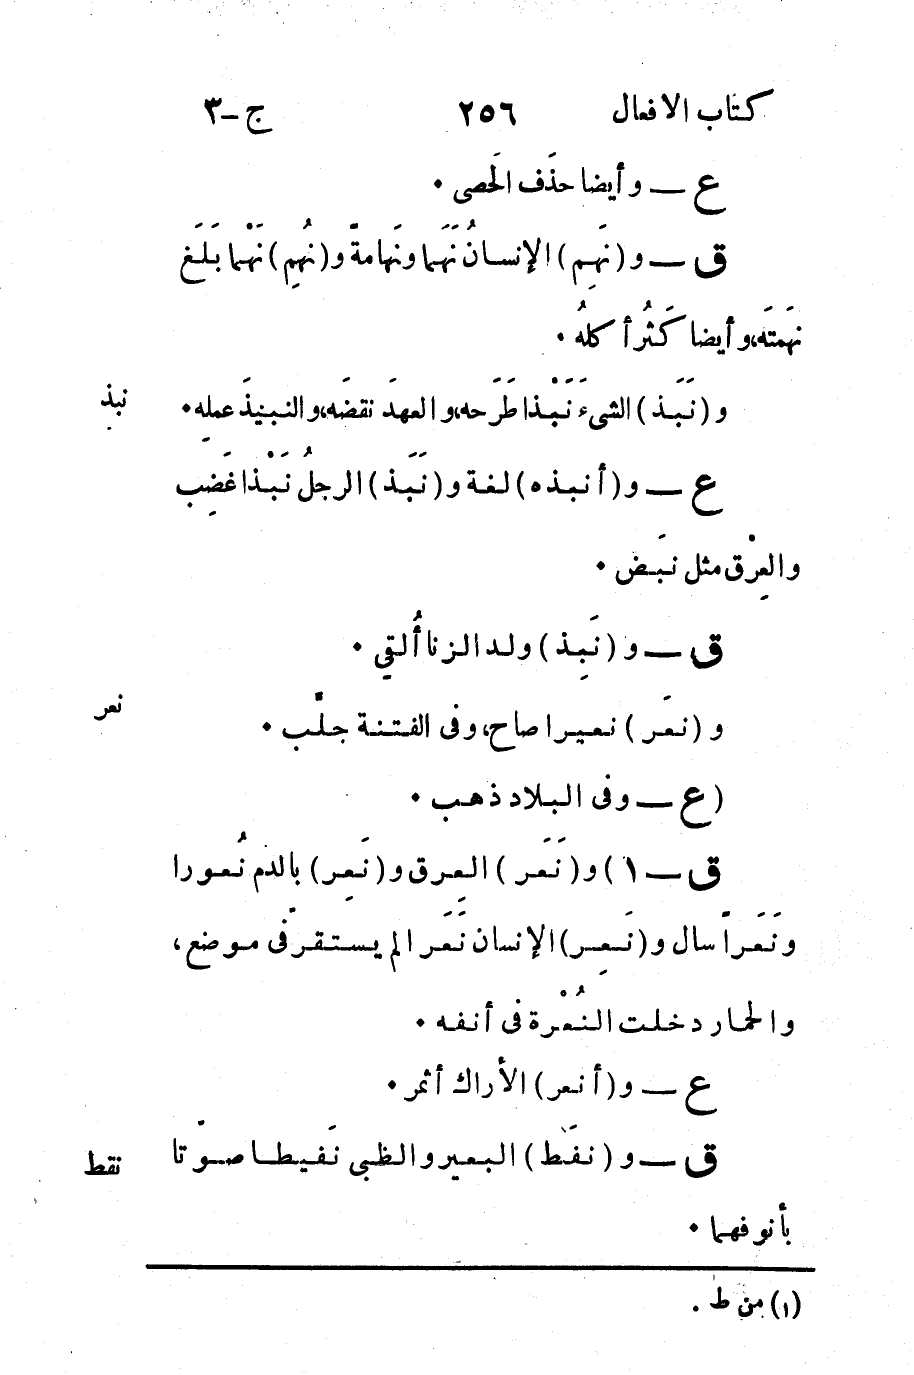 كتاب الافعال ٢٥٦ ج-٣
ع — وأيضا حذَف الَحصى ٠
ق — و (نَهِم) الإنسانُ نَهَما ونَهامةً و(نُهِم) نَهْما بَلَغ
نَهمَته، وأيضا كَثُر أكلُه ٠
و (نَبَذ) الشىءَ نَبْذا طَرَحه، والعهدَ نقضَه، والنبيذَ عمِله ٠
نبذ
ع — و (أنبذه) لغة و (نَبَذ) الرجلُ نَبْذا غَضِب
والعِرْق مثل نبَض ٠
ق — و (نَبِذ) ولد الزنا أُلقِي ٠
و (نعَر) نعيرا صاح، وفى الفتنة جلّب ٠
نعر
(ع — وفى البلاد ذهب ٠
ق — ١) و (نَعَر) العِرق و (نَعِر) بالدم نُعورا
ونَعَراً سال و (نَعِر) الإنسان نَعَرا لم يستقرّ فى موضع،
والحمار دخلت النُعْرة فى أنفه ٠
ع — و (أنعر) الأراك أثمر ٠
ق — و (نفَط) البعير والظبى نَفيطا صوّتا
نقط
بأنوفهما ٠
(١) من ط .